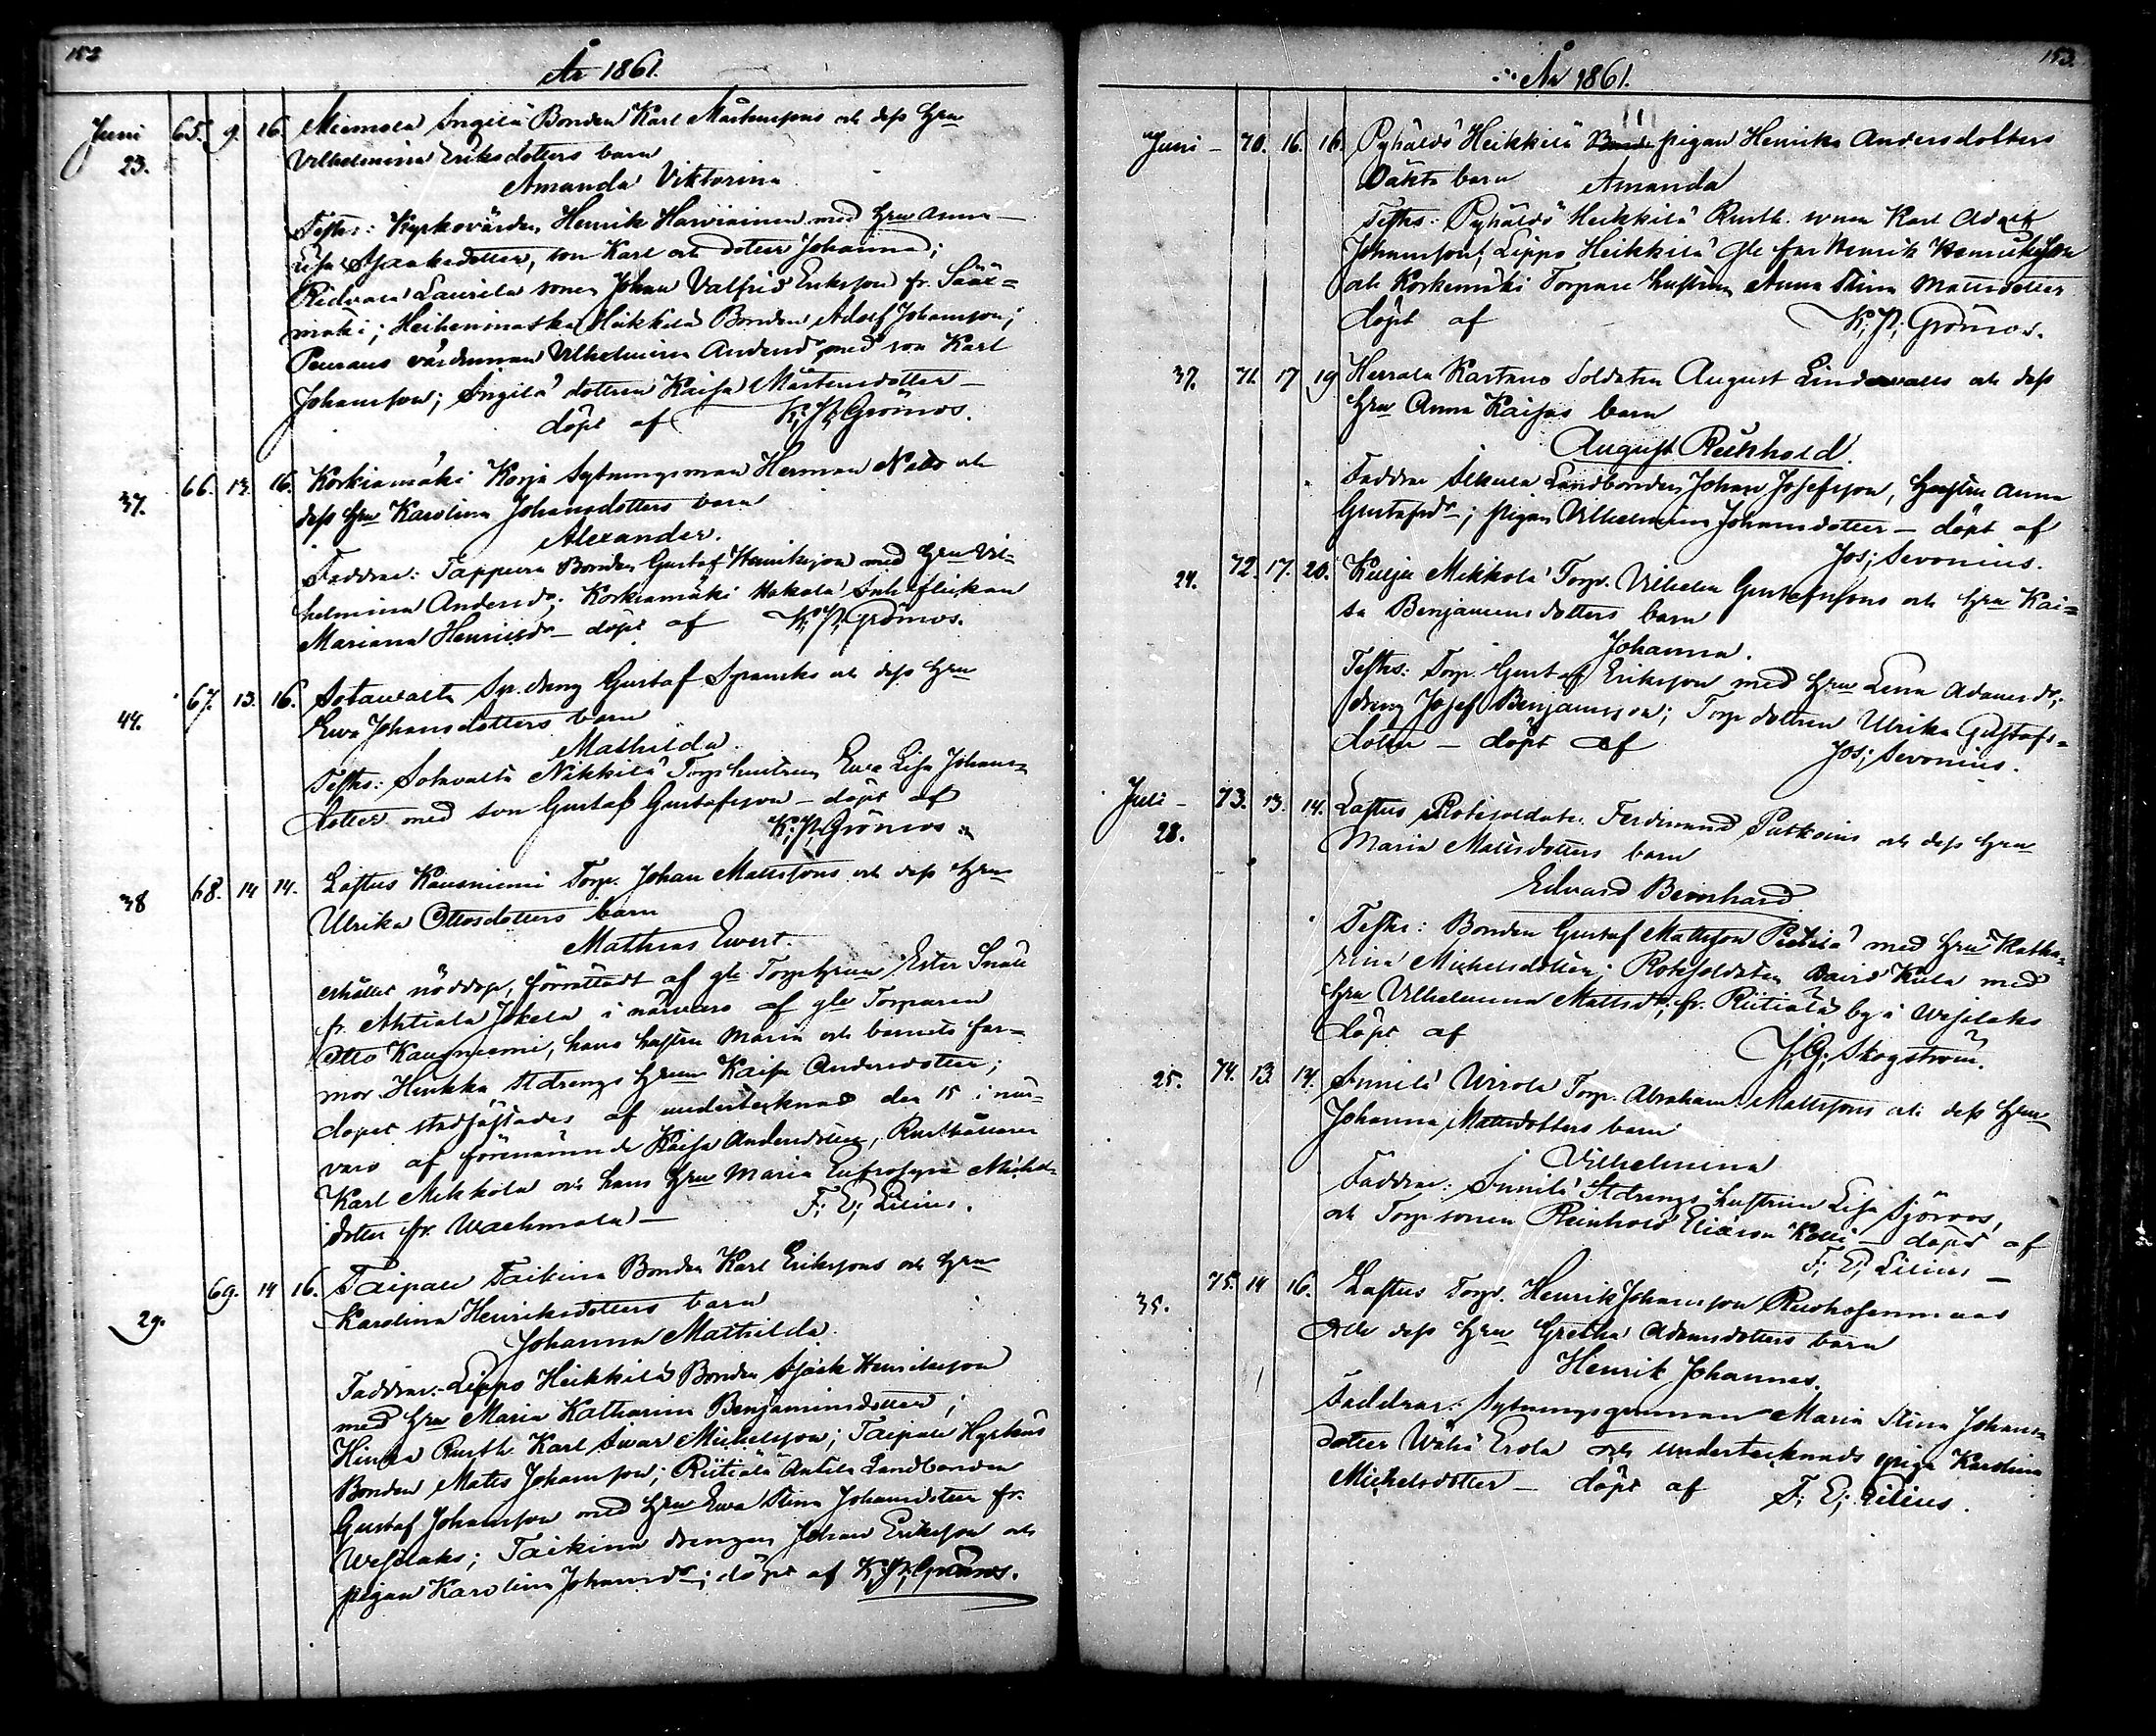 153
År 1861.
Juni 65. 9. 16. Miemola Ingilä Bonden Karl Mårtenssons och dess Hru
23. Vilhelmina Eriksdotters barn
Amanda Viktorina
Testes: Kyrkovärden Henrik Harviainen med Hru Anna
Lisa Isaaksdotter, son Karl och dotter Johanna;
Laurila sonen Johan Valfrid Eriksson fr. Sääx=
mäki; Heikkilä Bonden Adolf Johansson;
värdinnan Vilhelmina Andersdr med son Karl
Johansson; Ingilä dottren Kaisa Mårtensdotter
döpt af K. J. Grönroos.
66. 13. 16. Korkiamäki Korja Sytningsman Herman och
37. dess Hru Karolina Johansdotters barn
Alexander.
Faddrar: Bonden Gustaf Henriksson med Hru Vil=
helmina Andersdr; Korkiamäki Hakala flickan
Mariana Henriksdr – döpt af K. J. Grönroos.
67. 13. 16. Sotavalta dräng Gustaf och dess Hru
44. Eva Johansdotters barn
Mathilda.
Testes: Sotavalta Nikkilä Torp. hustrun Eva Lisa Johans=
dotter med son Gustaf Gustafsson – döpt af
K. J. Grönroos
38 68. 14 14. Loftus Torp. Johan Mattssons och dess Hru
Ulrika Ottosdotters barn
Mathias Evert.
erhållit nöddop, förrättadt af gla Torp. Hrun Ester
fr. Ahtiala Jokela i närvaro af gle Torparen
Otto, hans hustru Maria och barnets far=
mor. Stdrengs Hrun Kaisa Andersdotter;
dopet stadfästades af undertecknad den 15 i när=
varo af förenämnde Kaisa Andersdotter, Rusthållaren
Karl Mikkola och hans Hru Maria Eufrosyne Michels=
dotter fr. Wachmola – F. E. Lilius.
69. 14 16. Taipale Taikina Bonden Karl Erikssons och Hru
29. Karolina Henriksdotters barn
Johanna Mathilda.
Faddrar: Lippo Heikkilä Bonden Isack Henriksson
med Hru Maria Katharina Benjaminsdotter;
Rusth. Karl Michelsson; Taipale
Bonden Matts Johansson; Riitiälä Anttila Landbonden
Gustaf Johansson med Hru Eva Stina Johansdotter fr.
Wesilaks; Taikina drengen Johan Eriksson och
pigan Karolina Johansdr; döpt af K. J. Grönroos.
153.
År 1861.
Juni – 70. 16. 16. Pyhäldö Heikkilä pigan Henrika Andersdotters
oäkta barn Amanda
Testes: Pyhäldö Heikkilä Rusth. sonen Karl Adolf
Johansson; Lippo Heikkilä gle far Henrik Henriksson
och Korkemäki Torpare hustrun Anna Stina Mattsdotter
döpt af K. J. Grönroos.
37. 71. 17 19 Herrala Kartano Soldaten August Lindevalls och dess
Hru Anna Kaisas barn
August Reikhold.
Faddrar Landbonden Johan Josefsson, hustru Anna
Gustafsdr; pigan Vilhelmina Johansdotter – döpt af
Jos. Sevonius.
24. 72. 17. 20. Kulju Mikkola Torp. Vilhelm Gustafssons och Hru Kai=
sa Benjaminsdotters barn
Johanna.
Testes: Torp. Gustaf Eriksson med Hru Lena Adamsdr;
dreng Josef Benjamsson; Torp. dottren Ulrika Gustafs=
dotter – döpt af Jos. Sevonius.
Juli – 73. 13. 14. Loftus Rotesoldaten Ferdinand och dess Hru
28. Maria Mattsdotters barn
Edvard Bernhard
Testes: Bonden Gustaf Mattsson Pietilä med Hru Katha=
rina Michelsdotter; Rotesoldaten David Kula med
Hru Vilhelmina Mattsdr; fr. Riitiälä by i Wesilaks
döpt af J. G. Skogström.
25. 74. 13. 14. Sunila Torp. Abraham Mattssons och dess Hru
Johanna Mattsdotters barn
Vilhelmina
Faddrar: Sunila Stdrengs hustrun Lisa Sjöroos,
och Torp sonen Reinhold Eliasson Kolli – döpt af
F. E. Lilius –
35. 75. 14 16. Loftus Torp. Henrik Johansson
och dess Hru Gretha Adamsdotters barn
Henrik Johannes.
Faddrar: Sytningsgumman Maria Stina Johans=
dotter Erola och undertecknads piga Karolina
Michelsdotter – döpt af F. E. Lilius.